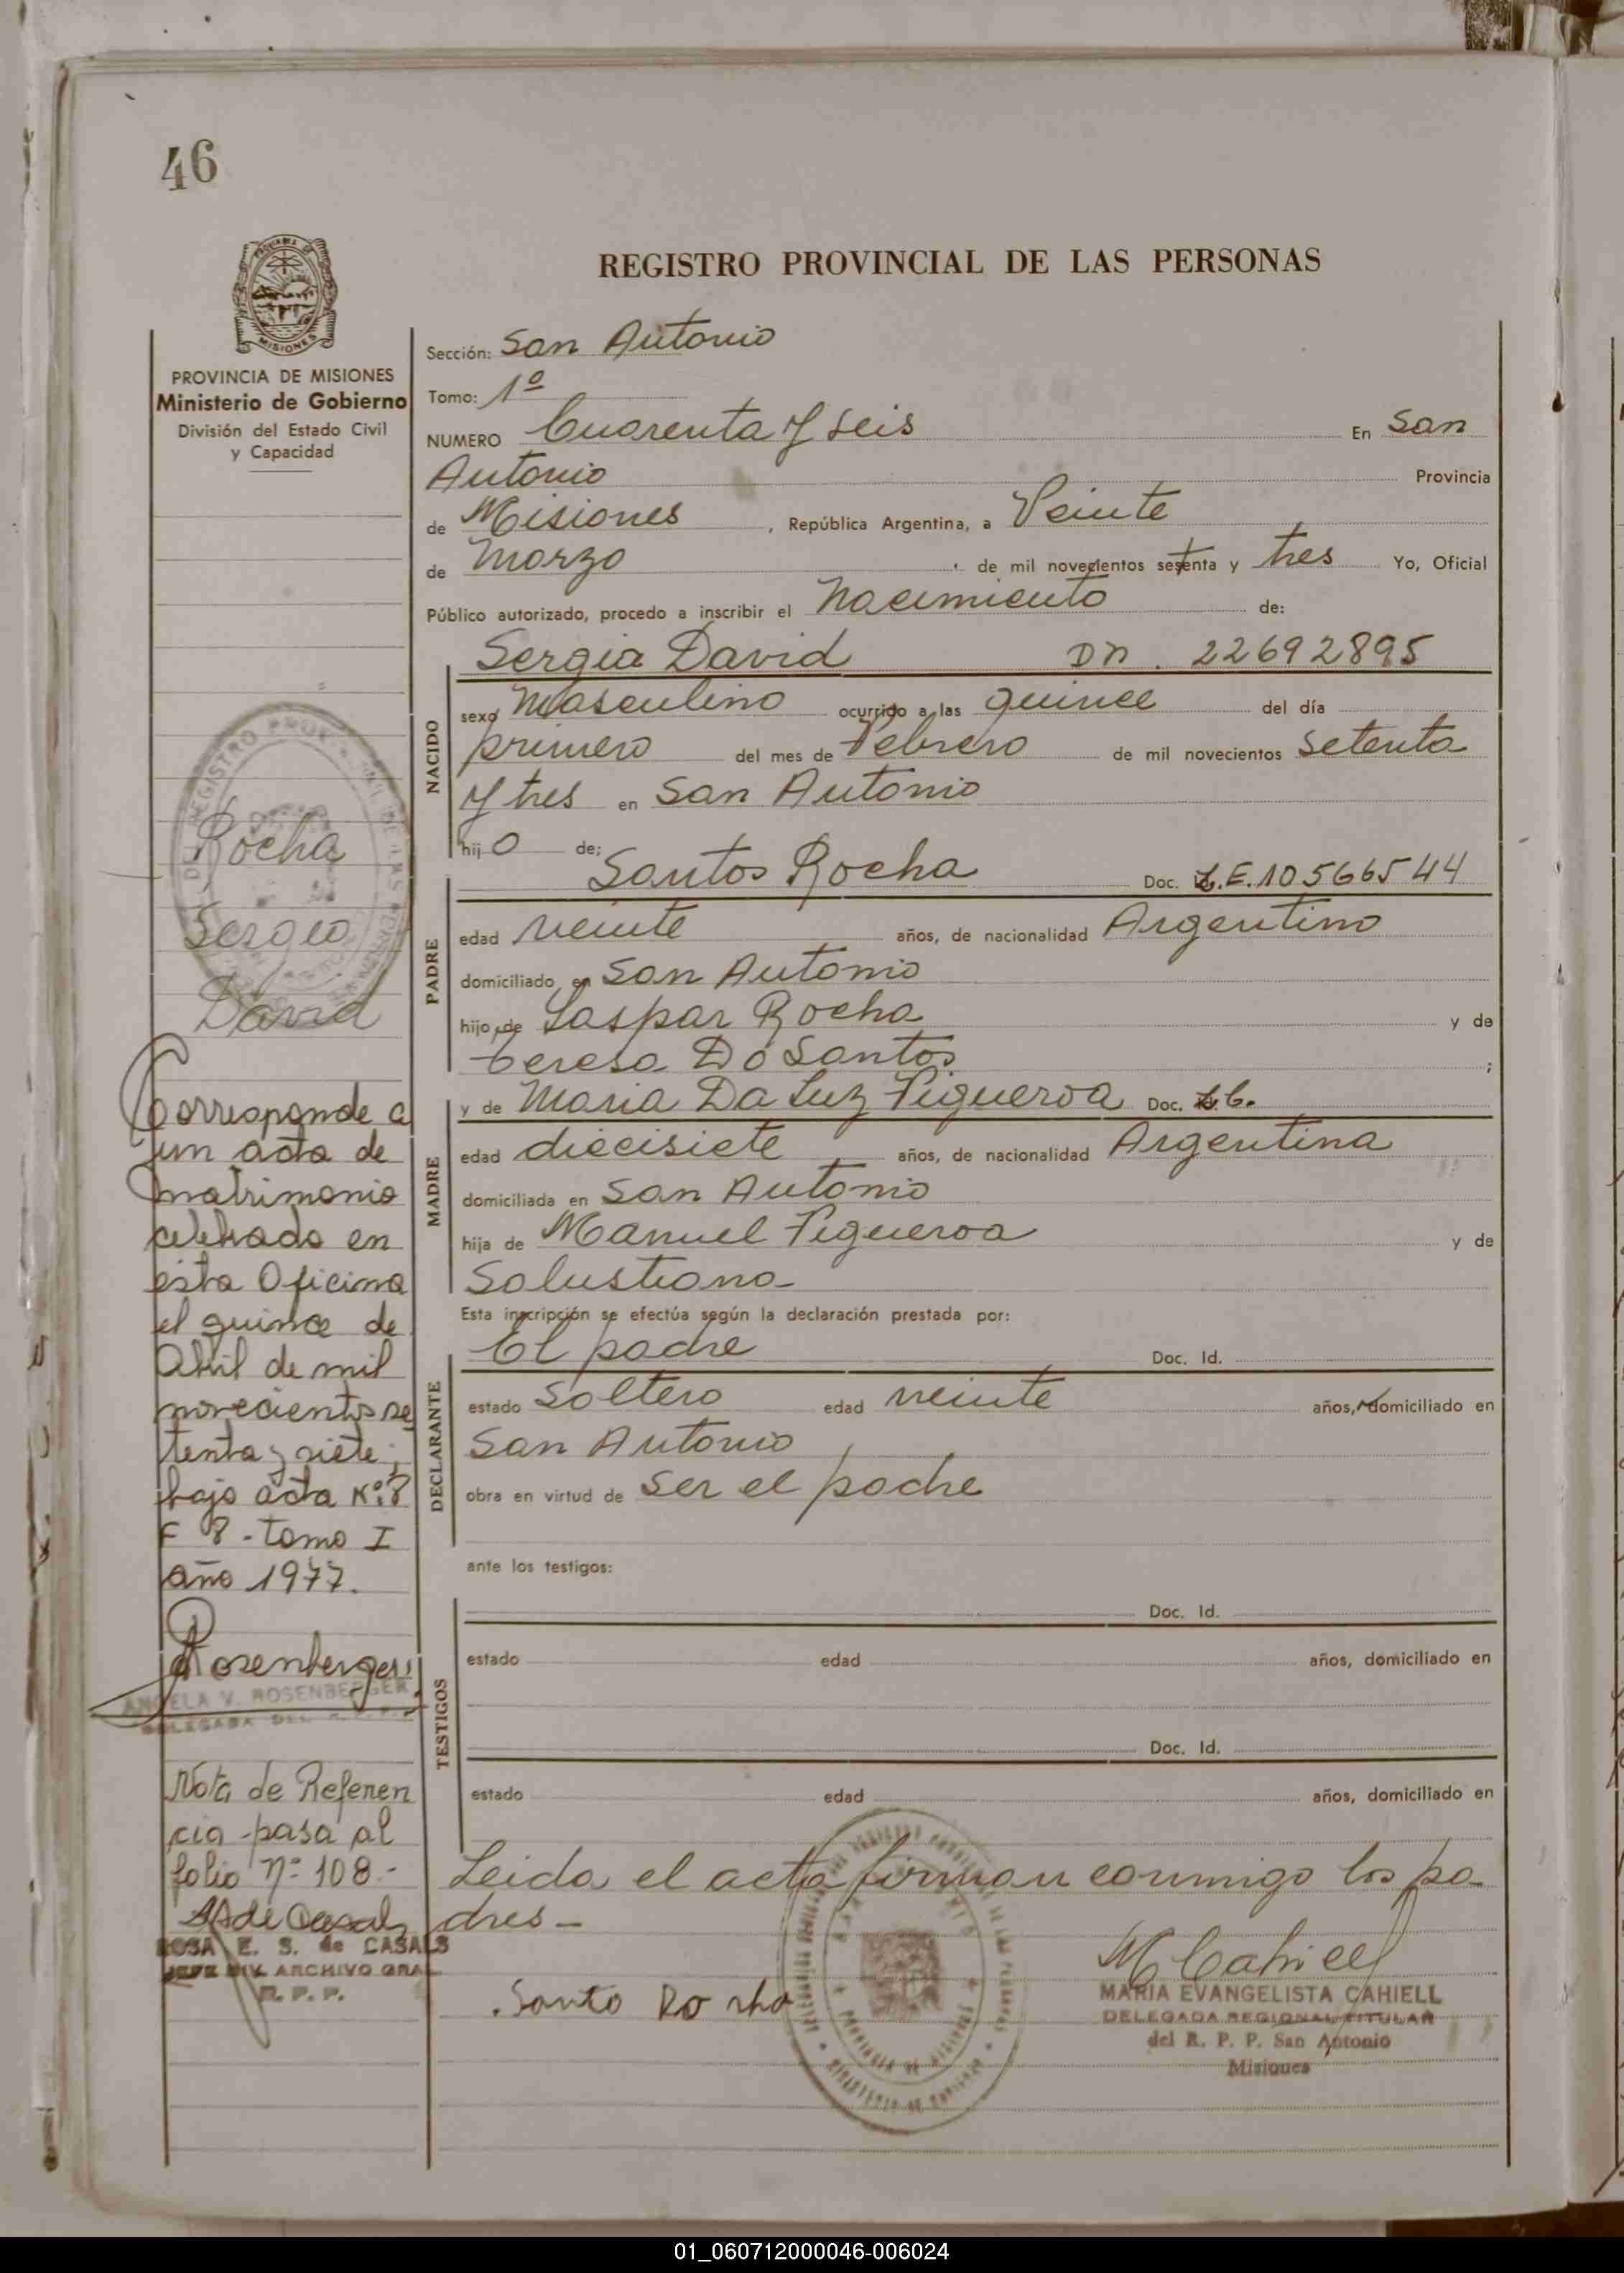 46
REGISTRO PROVINCIAL DE LAS PERSONAS
MISIONES
PROVINCIA DE MISIONES
Ministerio de Gobierno
División del Estado Civil
y Capacidad
Sección: San Antonio
Tomo: 1º
NUMERO Cuarenta y seis En San
Antonio Provincia
de Misiones, República Argentina, a Veinte
de Marzo de mil novecientos setenta y tres Yo, Oficial
Público autorizado, procedo a inscribir el Nacimiento de:
Sergia David DN. 22692895
NACIDO
sexo Masculino ocurrido a las quince del día
primero del mes de Febrero de mil novecientos setenta
y tres en San Antonio
hijo de:
Santos Rocha Doc. L.E. 10566544
PADRE
edad veinte años, de nacionalidad Argentino
domiciliado en San Antonio
hijo de Gaspar Rocha y de
Teresa Do Santos ;
y de Maria Da Luz Figueroa Doc. L.C.
MADRE
edad diecisiete años, de nacionalidad Argentina
domiciliada en San Antonio
hija de Manuel Figueroa y de
Solustiana
Esta inscripción se efectúa según la declaración prestada por:
El padre Doc. Id.
DECLARANTE
estado soltero edad veinte años, domiciliado en
San Antonio
obra en virtud de ser el padre
ante los testigos:
TESTIGOS
Doc. Id.
estado edad años, domiciliado en
Doc. Id.
estado edad años, domiciliado en
Leida el acta firman conmigo los pa-
dres-
Santo Rocha
M Cahiell
MARIA EVANGELISTA CAHIELL
DELEGADA REGIONAL TITULAR
del R. P. P. San Antonio
Misiones
Rocha
Sergio
David
Corresponde a
un acta de
matrimonio
celebrado en
esta Oficina
el quince de
Abril de mil
novecientos se
tenta y siete;
bajo acta Nº: 8
F 8 - Tomo I
año 1977.
Rosenberger
ANGELA V. ROSENBERGER
DELEGADA DEL R. P. P.
Nota de Referen
cia pasa al
folio Nº 108.-
ROSA E. S. de CASALS
JEFE DIV. ARCHIVO GRAL
R. P. P.
01_060712000046-006024